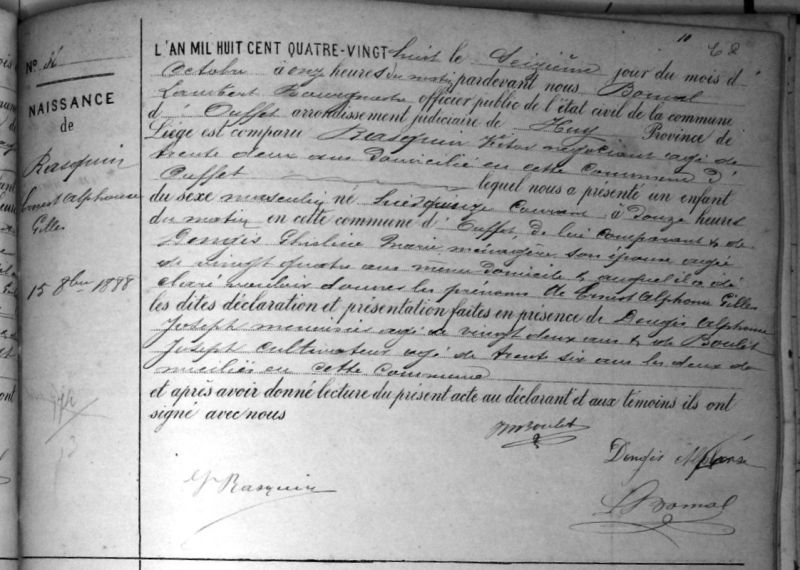 10
N°
NAISSANCE
de
Rasquin
Ernest Alphonse
Gilles
15 8bre 1888
L'AN MIL HUIT CENT QUATRE-VINGT huit le Seizième jour du mois d'
Octobre à onze heures du matin pardevant nous Bomal
Lambert Bourgmestre officier public de l'état civil de la commune
d' Ouffet arrondissement judiciaire de Huy Province de
Liége est comparu Rasquin Victor négociant agé de
trente deux ans domicilié en cette commune d'
Ouffet lequel nous a présenté un enfant
du sexe masculin né hier quinze courant à Douze heures
du matin en cette commune d' Ouffet de lui comparant & de
Ghisline Marie, ménagère, son épouse, agée
de vingt quatre ans même domicile & auquel il a dé
claré vouloir donner les prénoms de Ernest Alphonse Gilles
les dites déclaration et présentation faites en présence de Dougis Alphonse
Joseph menuisier agé de vingt deux ans & de Boulet
Joseph cultivateur agé de trent six ans les deux do
miciliés en cette commune
et après avoir donné lecture du présent acte au déclarant et aux témoins ils ont
signé avec nous
Boulet
Dougis Alphonse
Rasquin
L Bomal